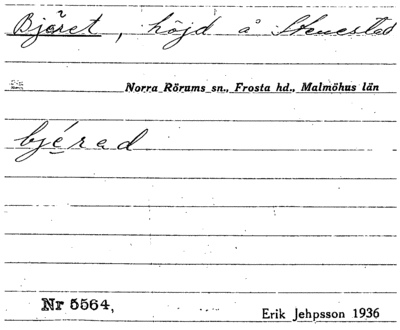 Bjäret, höjd å Stenestad
Norra Rörums sn., Frosta hd., Malmöhus län
bjérad
Nr 5564,
Erik Jehpsson 1936